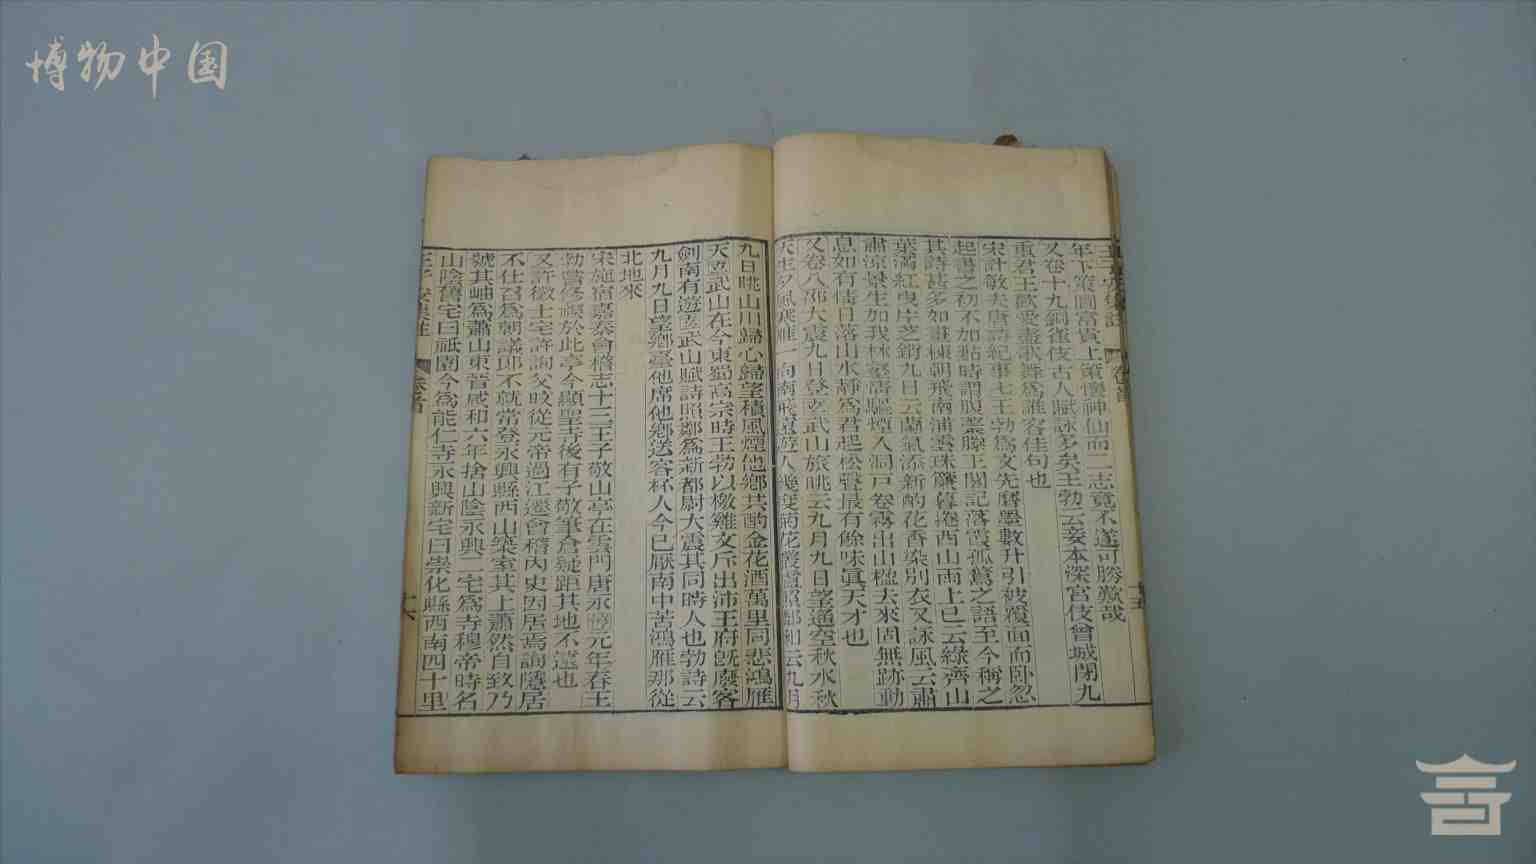 博物中国
王子安集註 卷首 十五
年下策圖富貴上策懷神仙而二志竟不遂可勝歎哉
又卷十九銅雀伎古人賦詠多矣王勃云妾本深宮伎曾城閉九
重君王歡愛盡歌舞爲誰容佳句也
宋計敏夫唐詩紀事七王勃爲文先磨墨數升引被覆面而卧忽
起書之初不加點時謂腹藁滕王閣記落霞孤鶩之語至今稱之
其詩甚多如畫棟朝飛南浦雲珠簾暮捲西山雨上巳云綠齊山
葉滿紅曳片花銷九日云蘭氣添新酌花香染別衣又詠風云肅
肅涼景生加我林壑清驅煙入洞戸卷霧出山楹去來固無跡動
息如有情日落山水靜爲君起松聲最有餘味眞天才也
又卷八邵大震九日登玄武山旅眺云九月九日望遙空秋水秋
天生夕風寒雁一向南飛遠遊人幾度菊花叢盧照鄰和云九月
九日眺山川歸心歸望積風煙他鄉共酌金花酒萬里同悲鴻雁
天玄武山在今東蜀高宗時王勃以檄雞文斥出沛王府旣廢客
劍南有遊玄武山賦詩照鄰爲新都尉大震其同時人也勃詩云
九月九日望鄉臺他席他鄉送客杯人今已厭南中苦鴻雁那從
北地來
宋施宿嘉泰會稽志十三王子敬山亭在雲門唐永淳元年春王
勃嘗修禊於此亭今顯聖寺後有子敬筆倉疑距其地不遠也
又許徵士宅許詢父旼從元帝過江遷會稽內史因居焉詢隱居
不仕召爲朝議郎不就常登永興縣西山築室其上蕭然自致乃
號其岫爲蕭山東晉咸和六年捨山陰永興二宅爲寺穆帝時名
山陰舊宅曰祇園今爲能仁寺永興新宅曰崇化縣西南四十里
王子安集註 卷首 十六